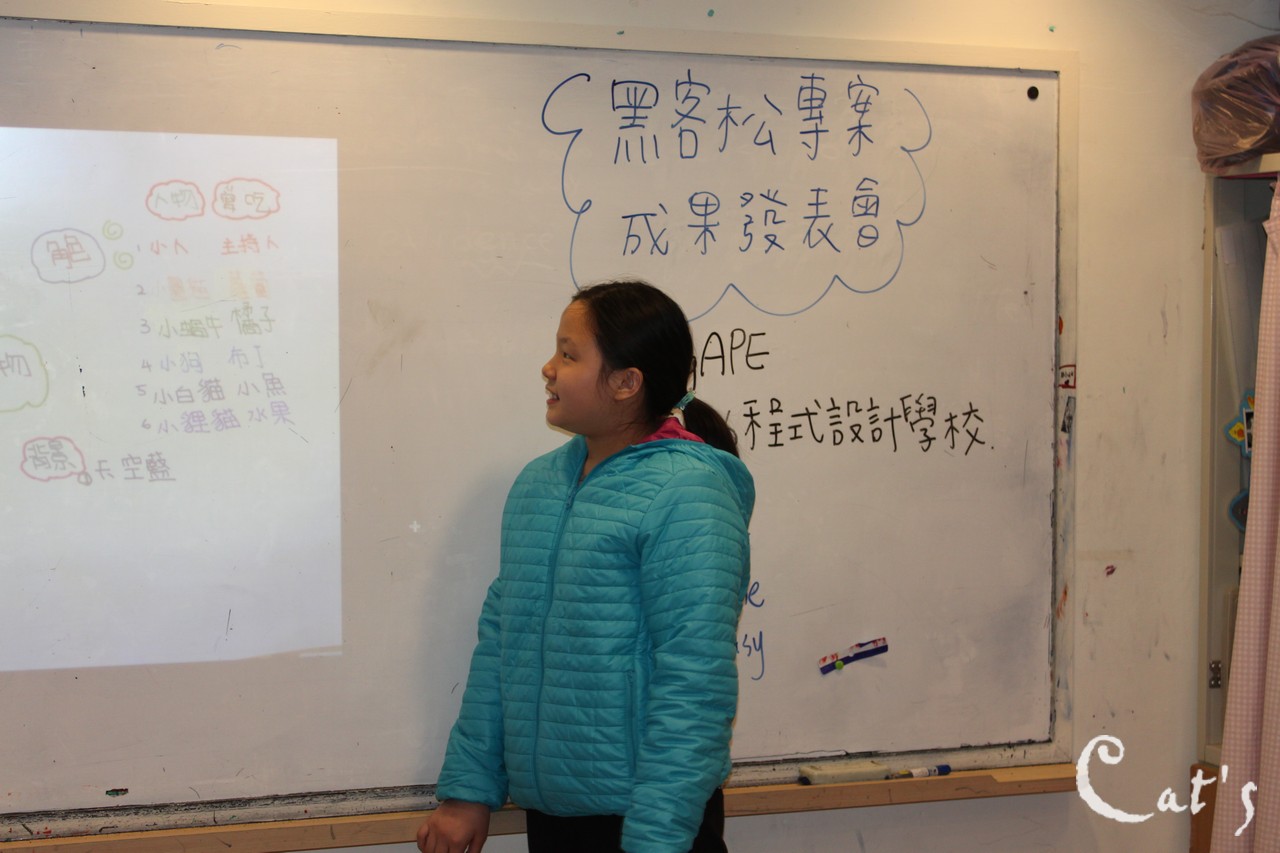 黑客松專案
成果發表會
APE
程式設計學校.
人物 愛吃
解
1 小人 主持人
2
3 小蝸牛 橘子
4 小狗 布丁
5 小白貓 小魚
6 小貍貓 水果
物
背景
天空藍
Cat's